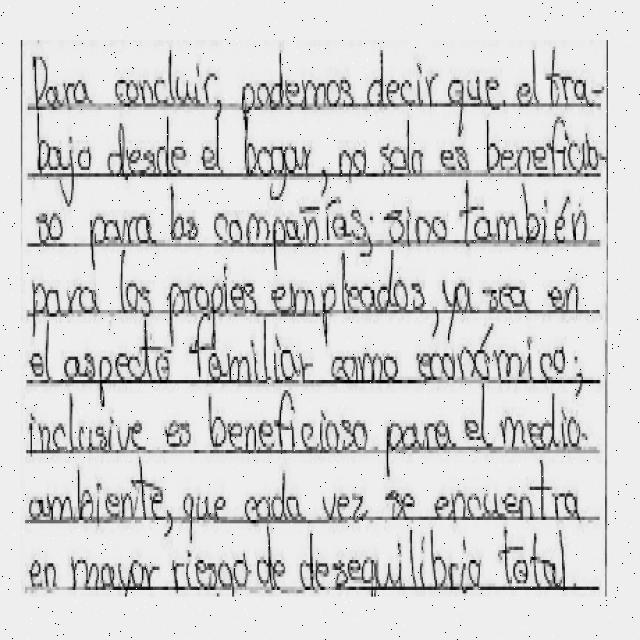 Para concluir, podemos decir que el tra-
bajo desde el hogar, no solo es beneficio-
so para las compañías; sino también
para los propies empleados, ya sea en
el aspecto familiar como económico;
inclusive es beneficioso para el medio-
ambiente, que cada vez se encuentra
en mayor riesgo de desequilibrio total.